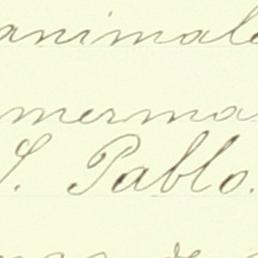 animale
merma
S. Pablo.